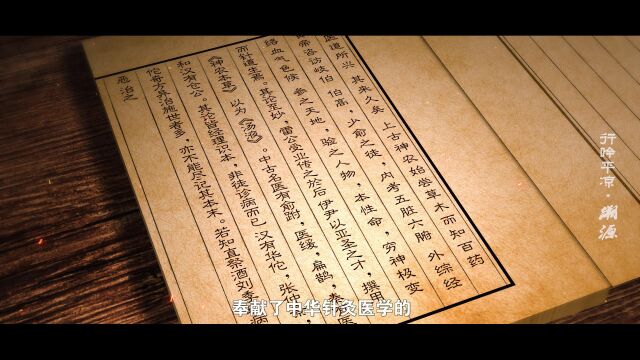 医道所兴 其来久矣 上古神农始尝草木而知百药
帝咨访岐伯 伯高,少俞之徒,内考五脏六腑 外综经
络血气色候 参之天地,验之人物,本性命,穷神极变
而针道生焉。其论至妙,雷公受业传之於后 伊尹以亚圣之才,撰用
《神农本草》 以为《汤液》。中古名医有俞跗,医缓,扁鹊,
和汉有仓公。其论皆经理识本,非徒诊病而已 汉有华佗,张仲
佗奇方异治施世者多,亦不能尽记其本末。若知直祭酒刘季
恶 治之
行吟平凉·溯源
奉献了中华针灸医学的